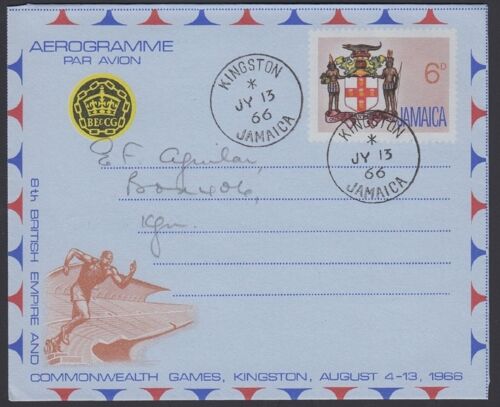 AEROGRAMME
PAR AVION
BE&CG
KINGSTON
*
JY 13
66
JAMAICA
6D
JAMAICA
KINGSTON
*
JY 13
66
JAMAICA
E F Aguilar,
Box 406,
Kgn.
8th BRITISH EMPIRE AND
COMMONWEALTH GAMES, KINGSTON, AUGUST 4-13, 1966